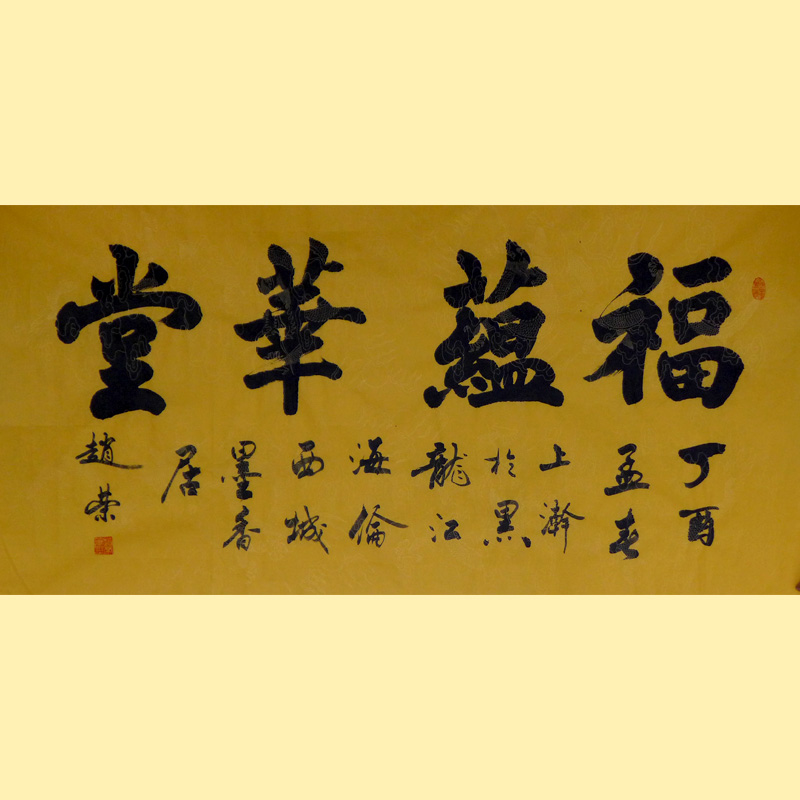 福蘊華堂
丁酉
孟春
上澣
於黑
龍江
海倫
西城
墨香
居
趙榮